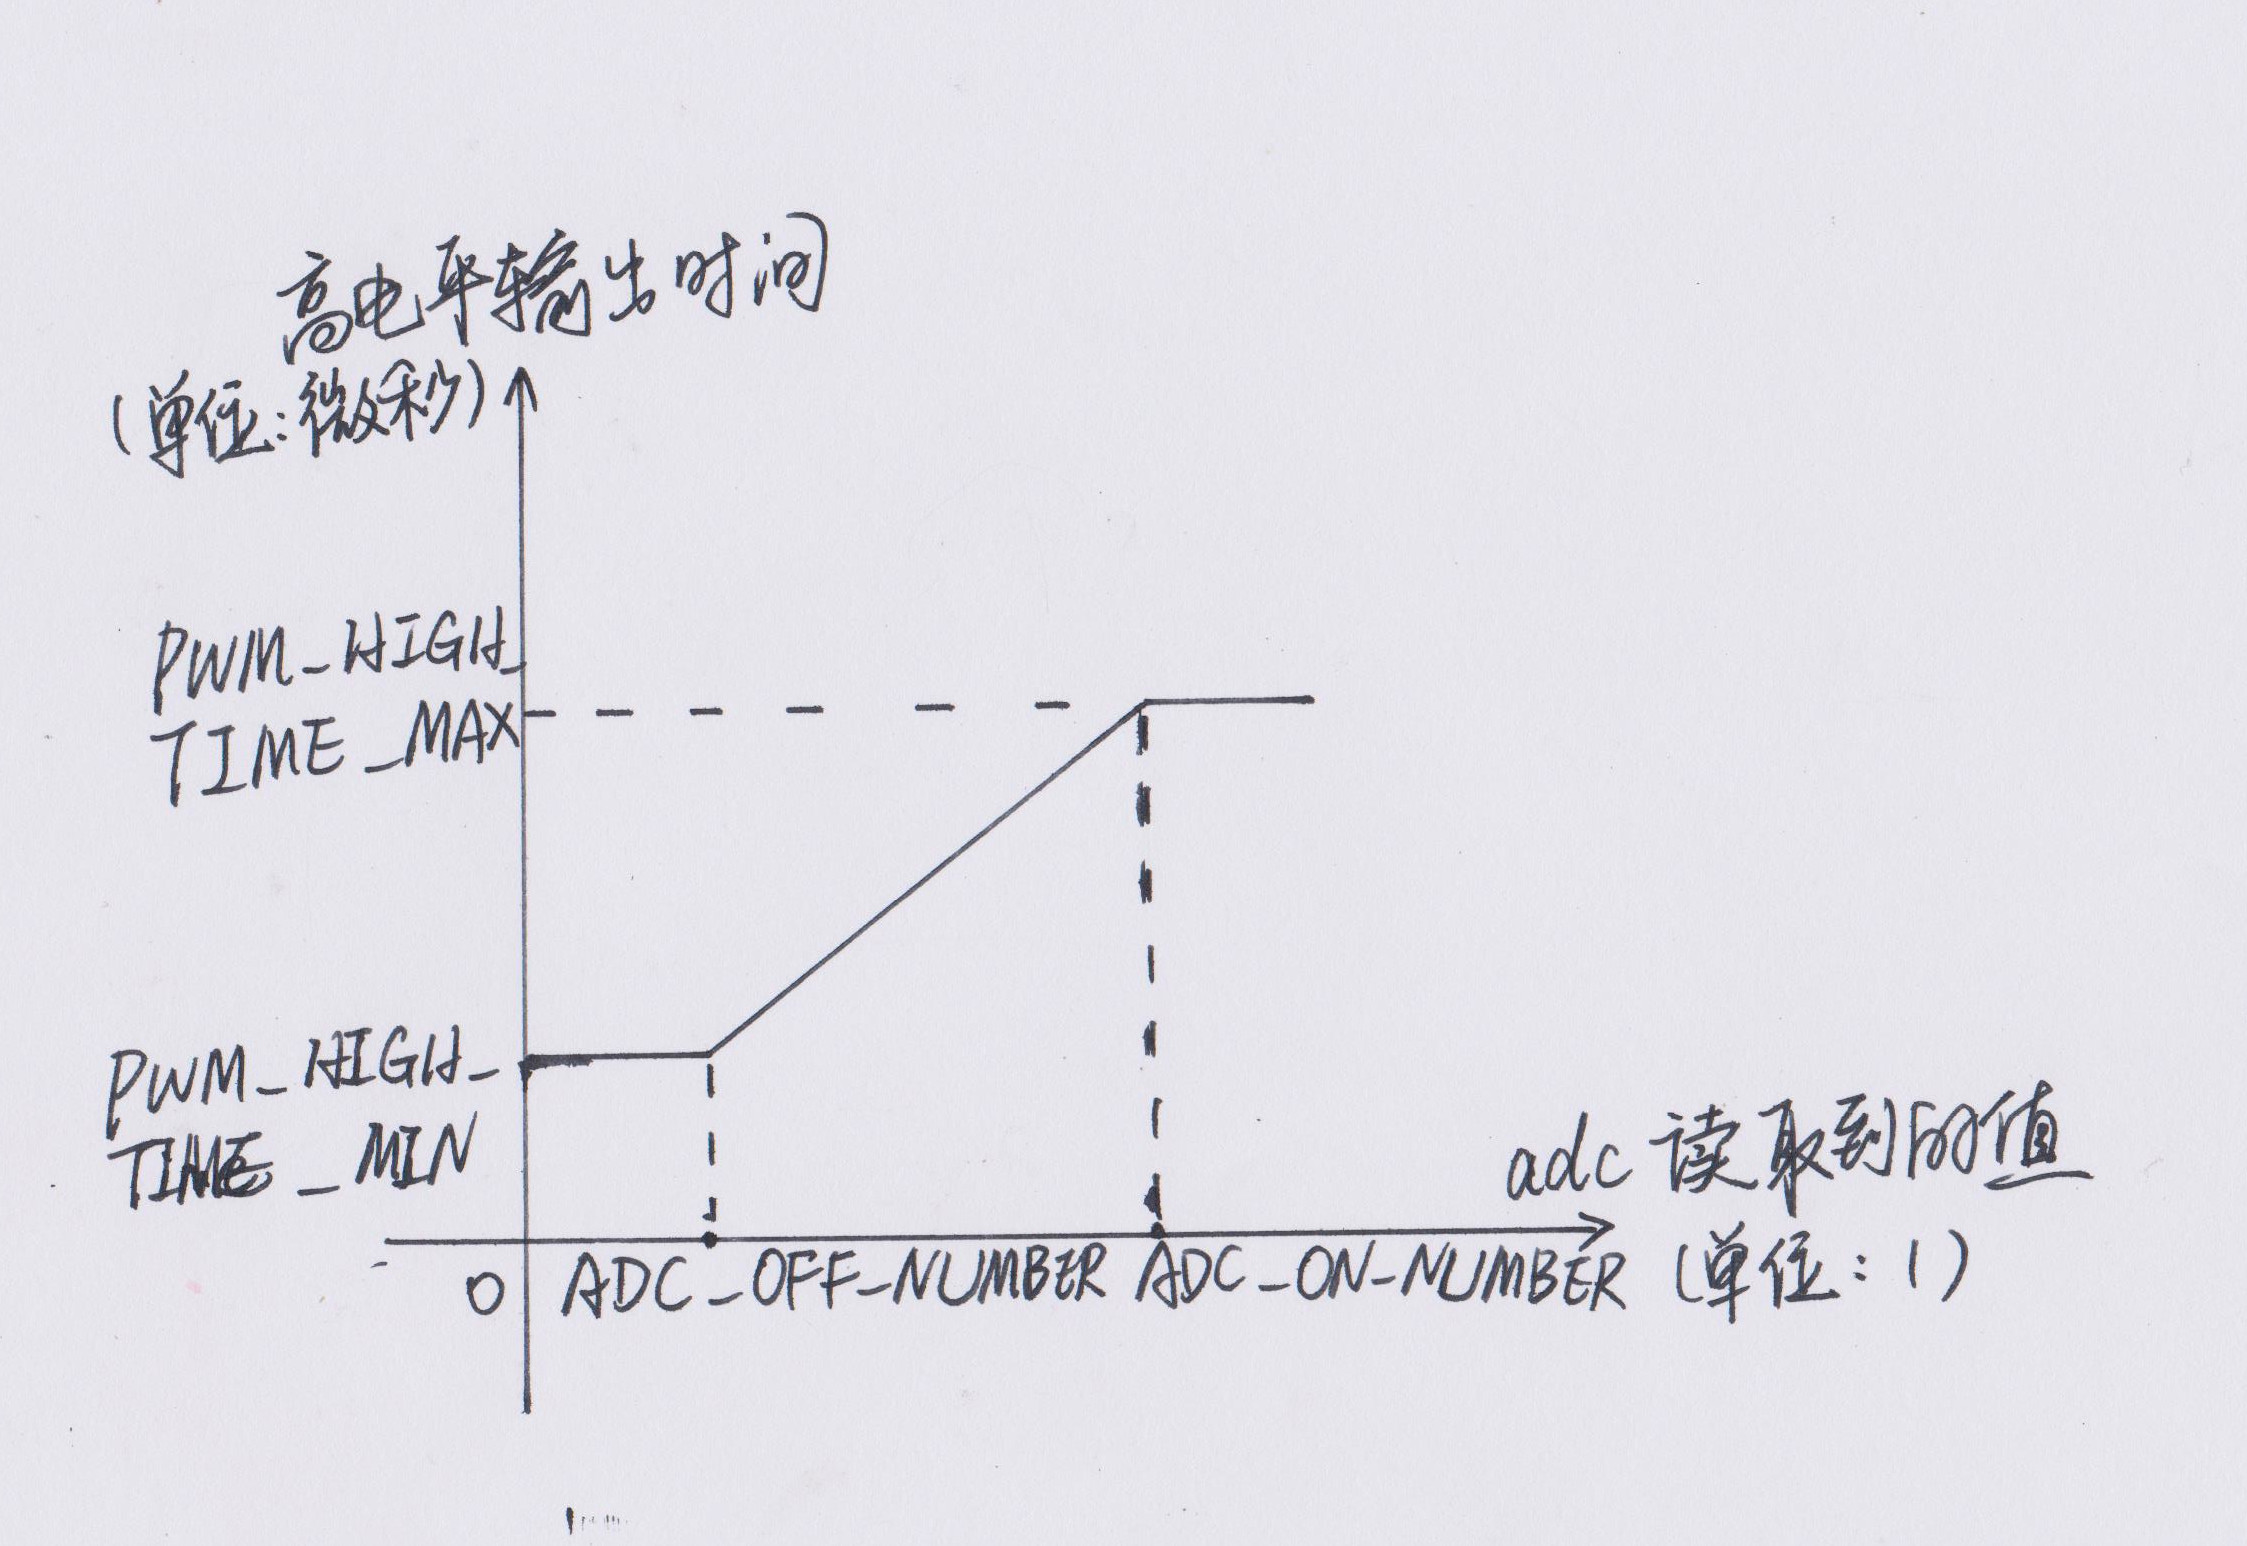 高电平输出时间
(单位:微秒)
PWM_HIGH_
TIME_MAX
PWM_HIGH_
TIME_MIN
adc 读取到的值
(单位:1)
0 ADC_OFF_NUMBER ADC_ON_NUMBER